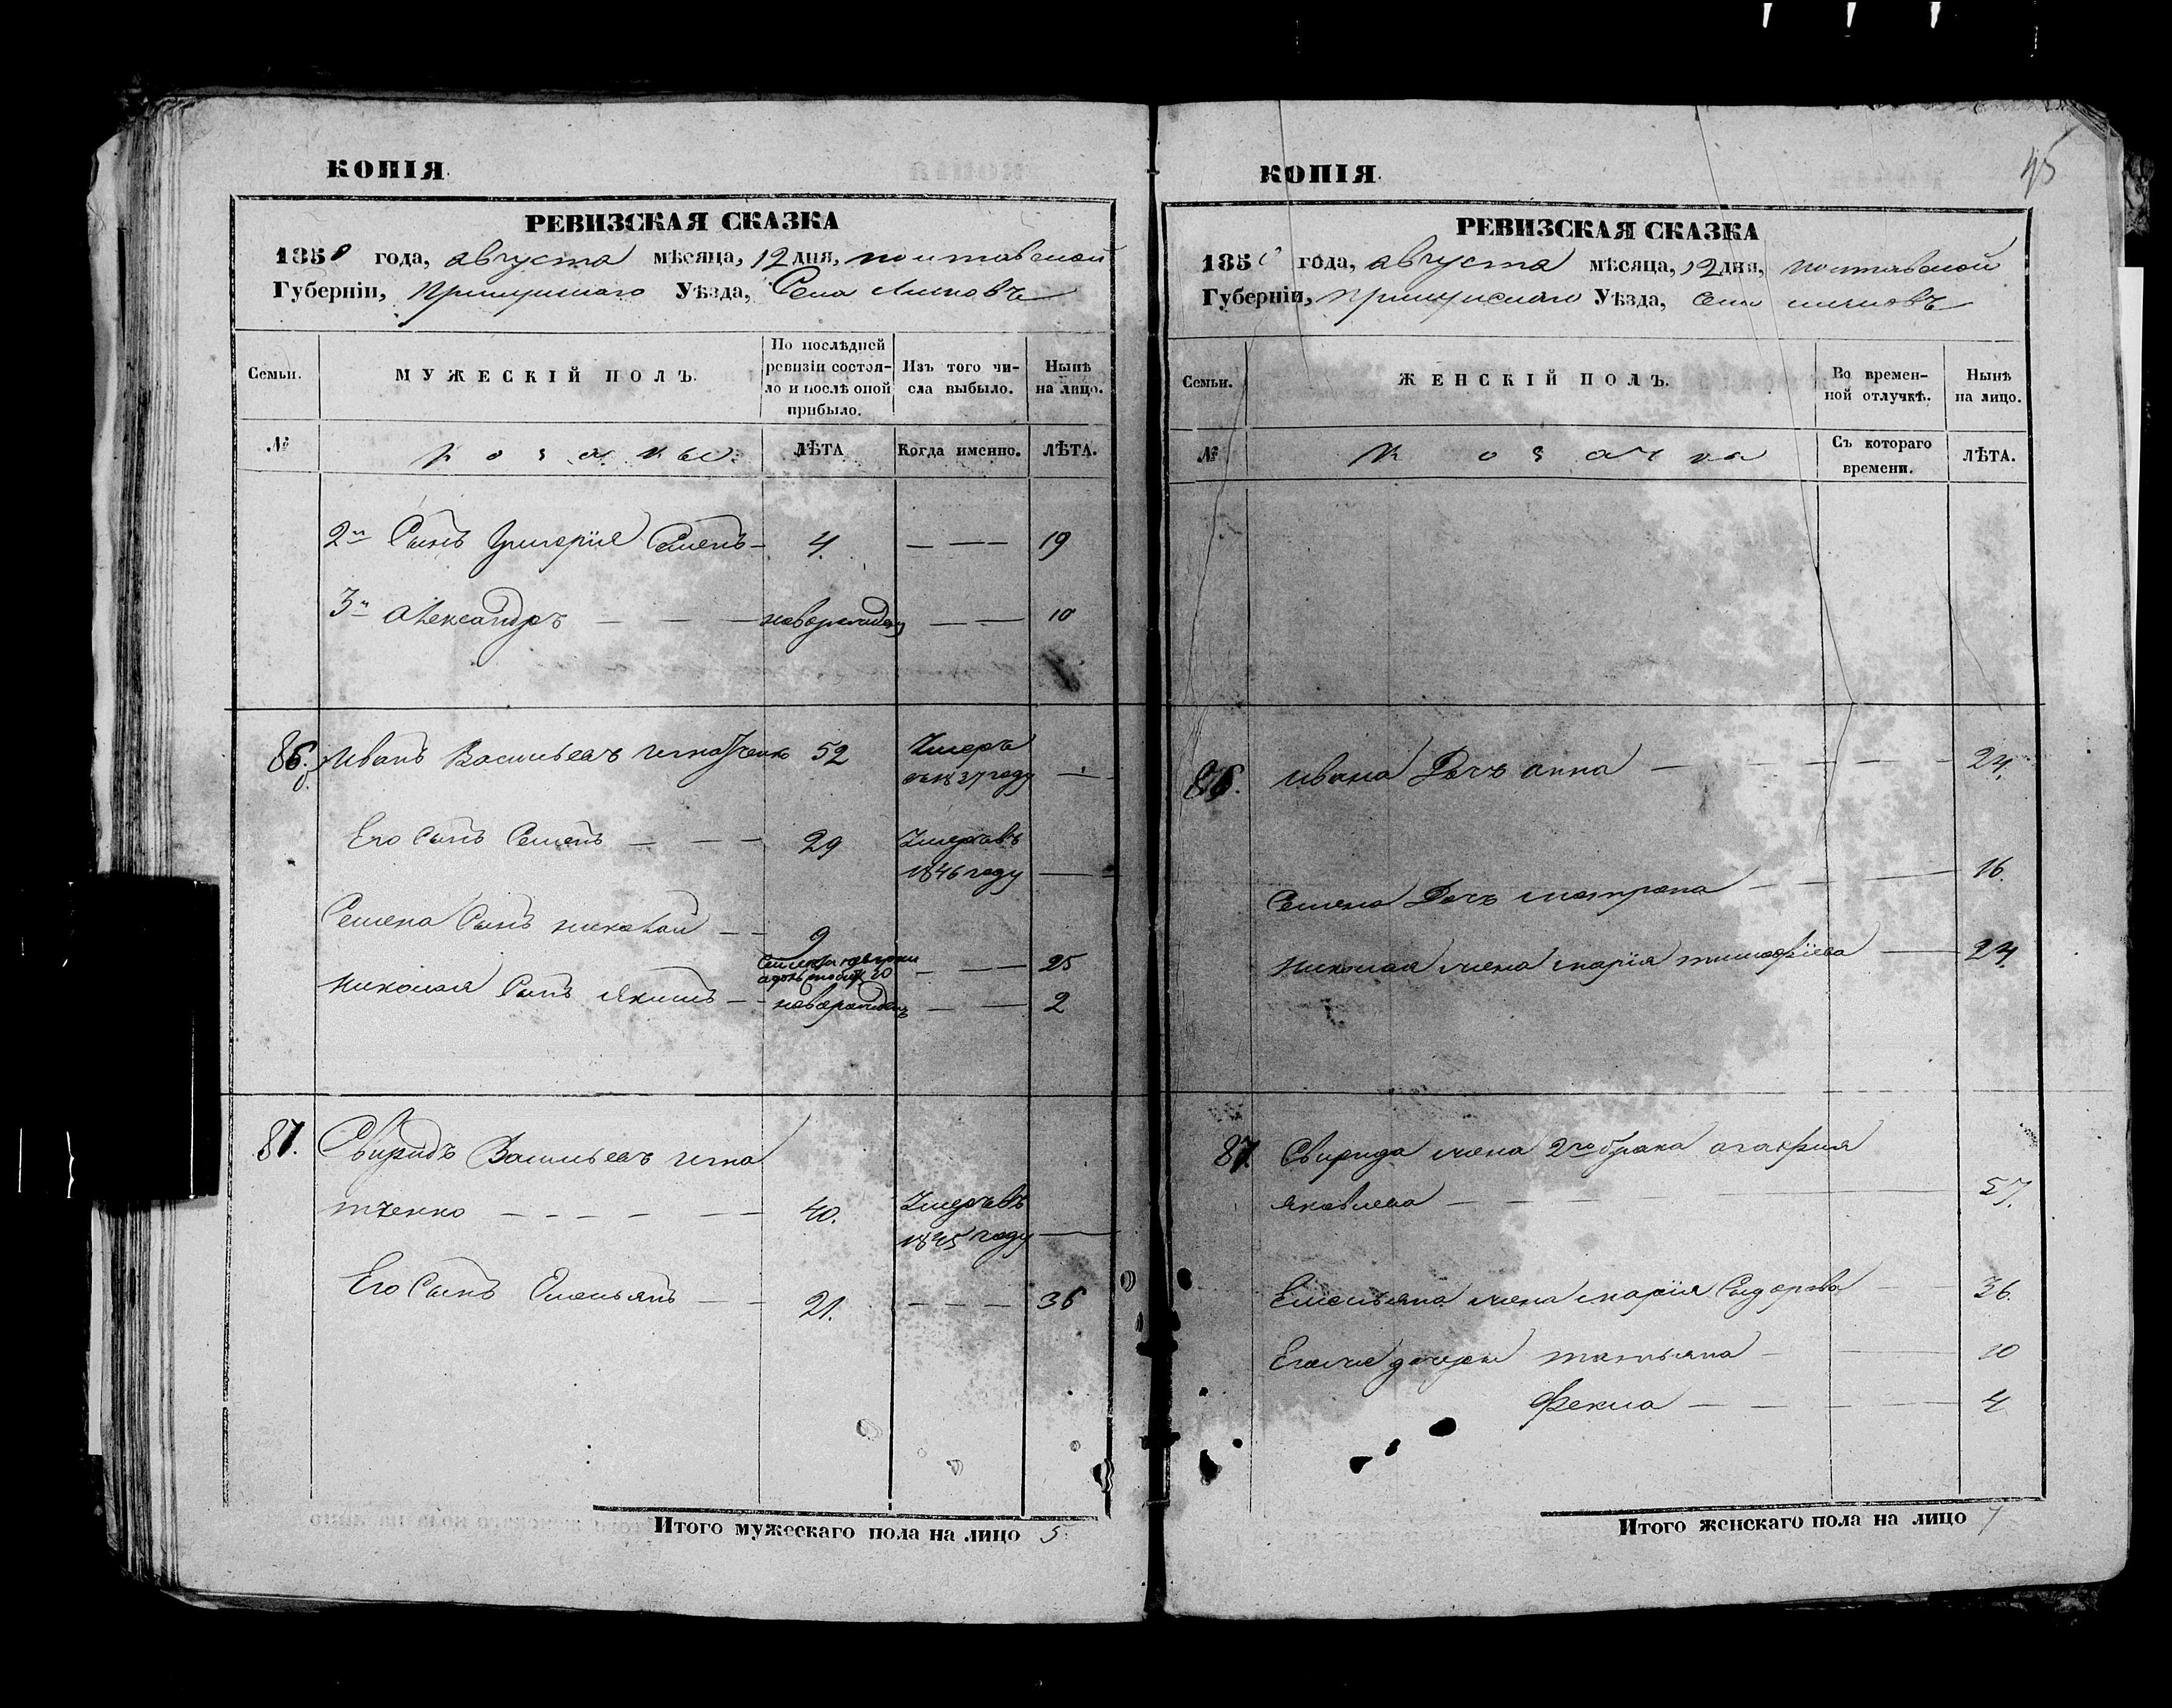 КОПІЯ.
РЕВИЗСКАЯ СКАЗКА
1850 года, августа мѣсяца, 12 дня, полтавской
Губерніи, прилуцкаго Уѣзда, Села
Семьи.
МУЖЕСКІЙ ПОЛЪ.
По послѣдней
ревизіи состоя-
ло и послѣ оной
прибыло.
Изъ того чи-
сла выбыло.
Нынѣ
на лицо.
№
козаки.
ЛѢТА
Когда именно.
ЛѢТА.
2й Сынъ Григорія Семенъ 4. 19
3й Александръ новорожденъ 10
86. Иванъ Васильевъ 52 Умеръ
въ 1837 году
Его Сынъ Семенъ 29 Умеръ въ
1846 году
Семена Сынъ николай 9 25
николая Сынъ Якимъ новорожденъ 2
87. Свиридъ Васильевъ игна
тченко 40. Умеръ въ
1845 году
Его Сынъ Омельянъ 21. 36
Итого мужескаго пола на лицо 5
45
КОПІЯ.
РЕВИЗСКАЯ СКАЗКА
1850 года, августа мѣсяца, 12 дня, полтавской
Губерніи, прилуцкаго Уѣзда, села
Семьи.
ЖЕНСКІЙ ПОЛЪ.
Во времен-
ной отлучкѣ.
Нынѣ
на лицо.
№
козачка
Съ котораго
времени.
ЛѢТА.
86. ивана Дочь анна 24.
Семена Дочь матрона 16.
николая жена марія тимофіева 24.
87. Свирида жена 2го брака агафия
яковлева 57.
Емельяна жена марія Сидорова 36.
Егоже дочери татьяна 10
Фекла 4
Итого женскаго пола на лицо 7